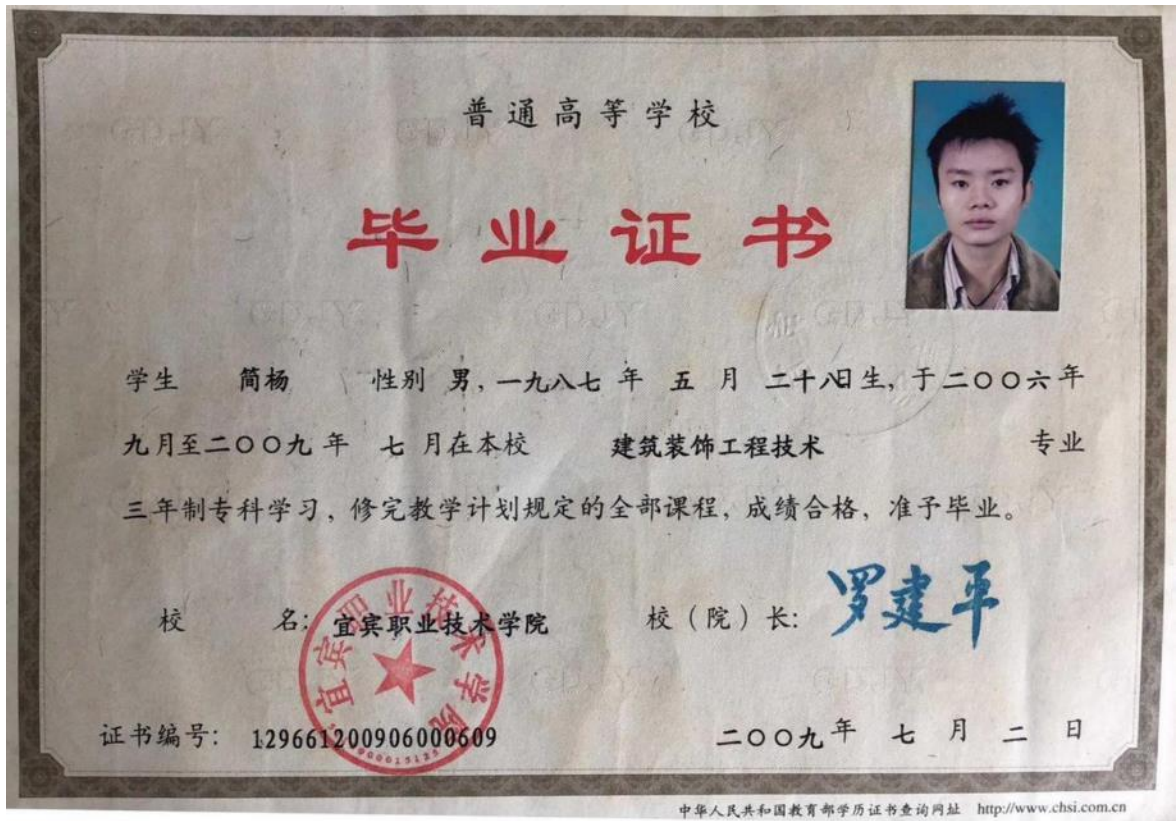 普通高等学校
毕业证书
学生 简杨 性别 男，一九八七 年 五 月 二十八日生，于二〇〇六年
九月至二〇〇九 年 七 月在本校 建筑装饰工程技术 专业
三年制专科学习，修完教学计划规定的全部课程，成绩合格，准予毕业。
校 名：宜宾职业技术学院 校（院）长：罗建平
宜宾职业技术学院
证书编号：129661200906000609 二〇〇九年 七 月 二 日
中华人民共和国教育部学历证书查询网址 http://www.chsi.com.cn